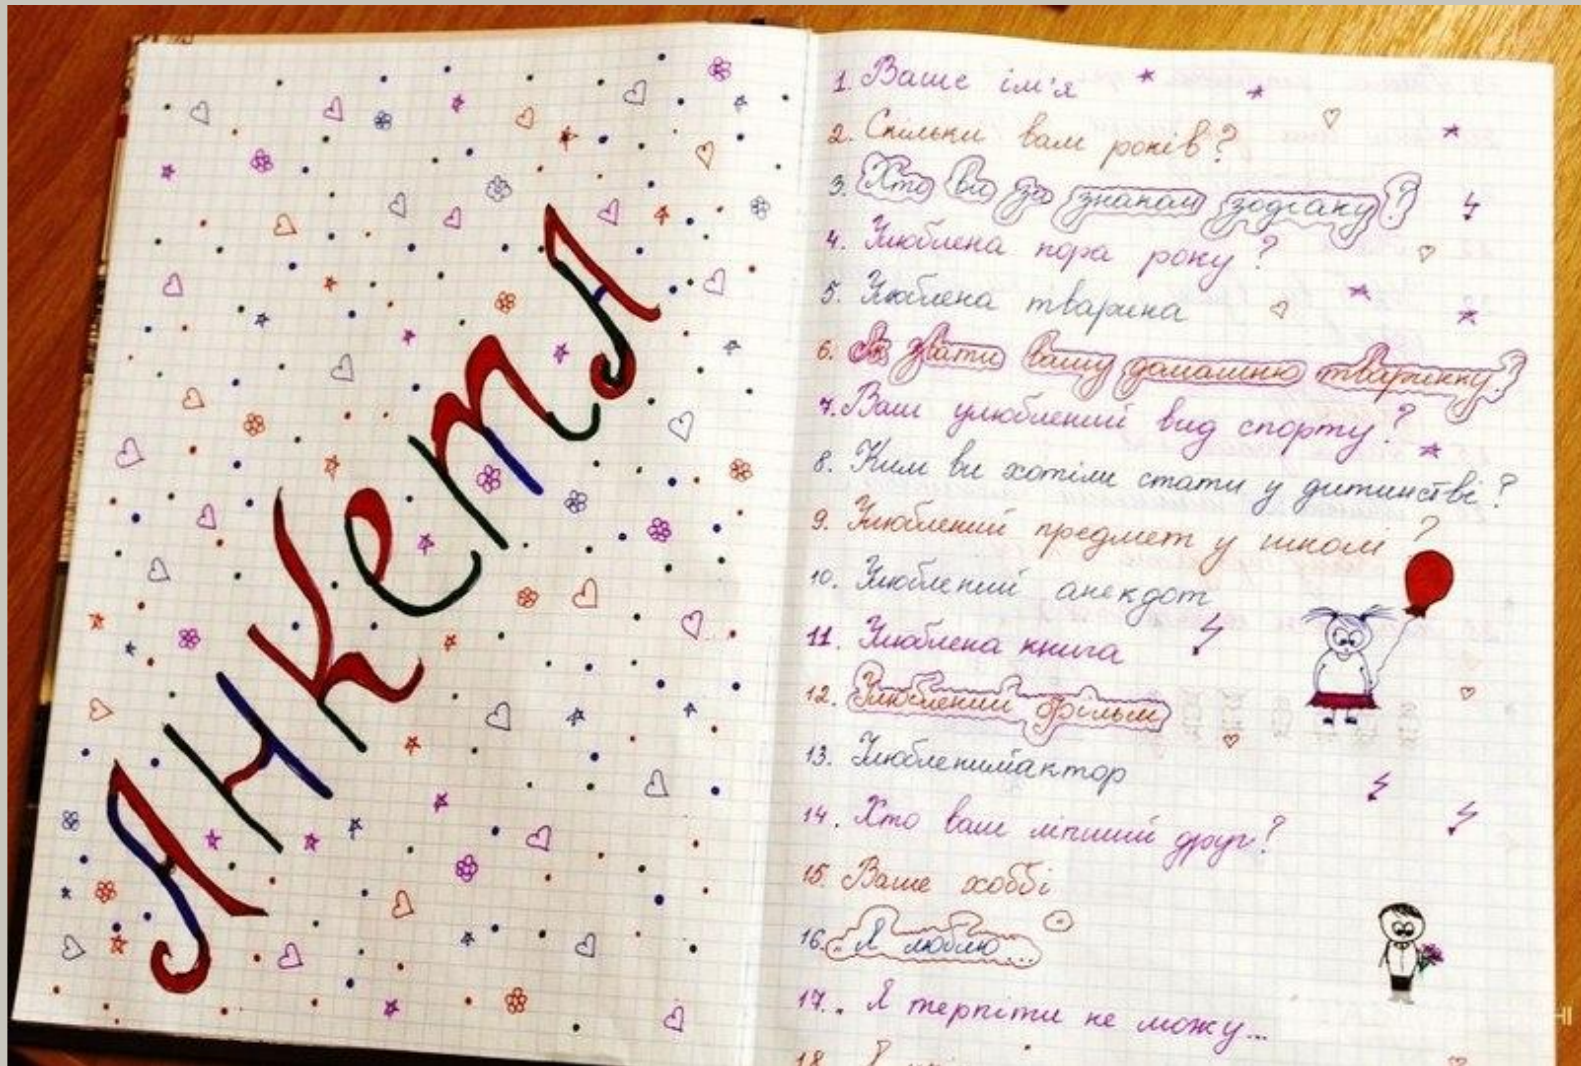 Анкета
1. Ваше ім'я
2. Скільки вам років?
3. Хто ви за знаком зодіаку?
4. Улюблена пора року?
5. Улюблена тварина
6. Як звати вашу домашню тваринку?
7. Ваш улюблений вид спорту?
8. Ким ви хотіли стати у дитинстві?
9. Улюблений предмет у школі?
10. Улюблений анекдот
11. Улюблена книга
12. Улюблений фільм
13. Улюблениймактор
14. Хто ваш ліпший друг?
15. Ваше хоббі
16. Я люблю...
17. Я терпіти не можу...
18. Я